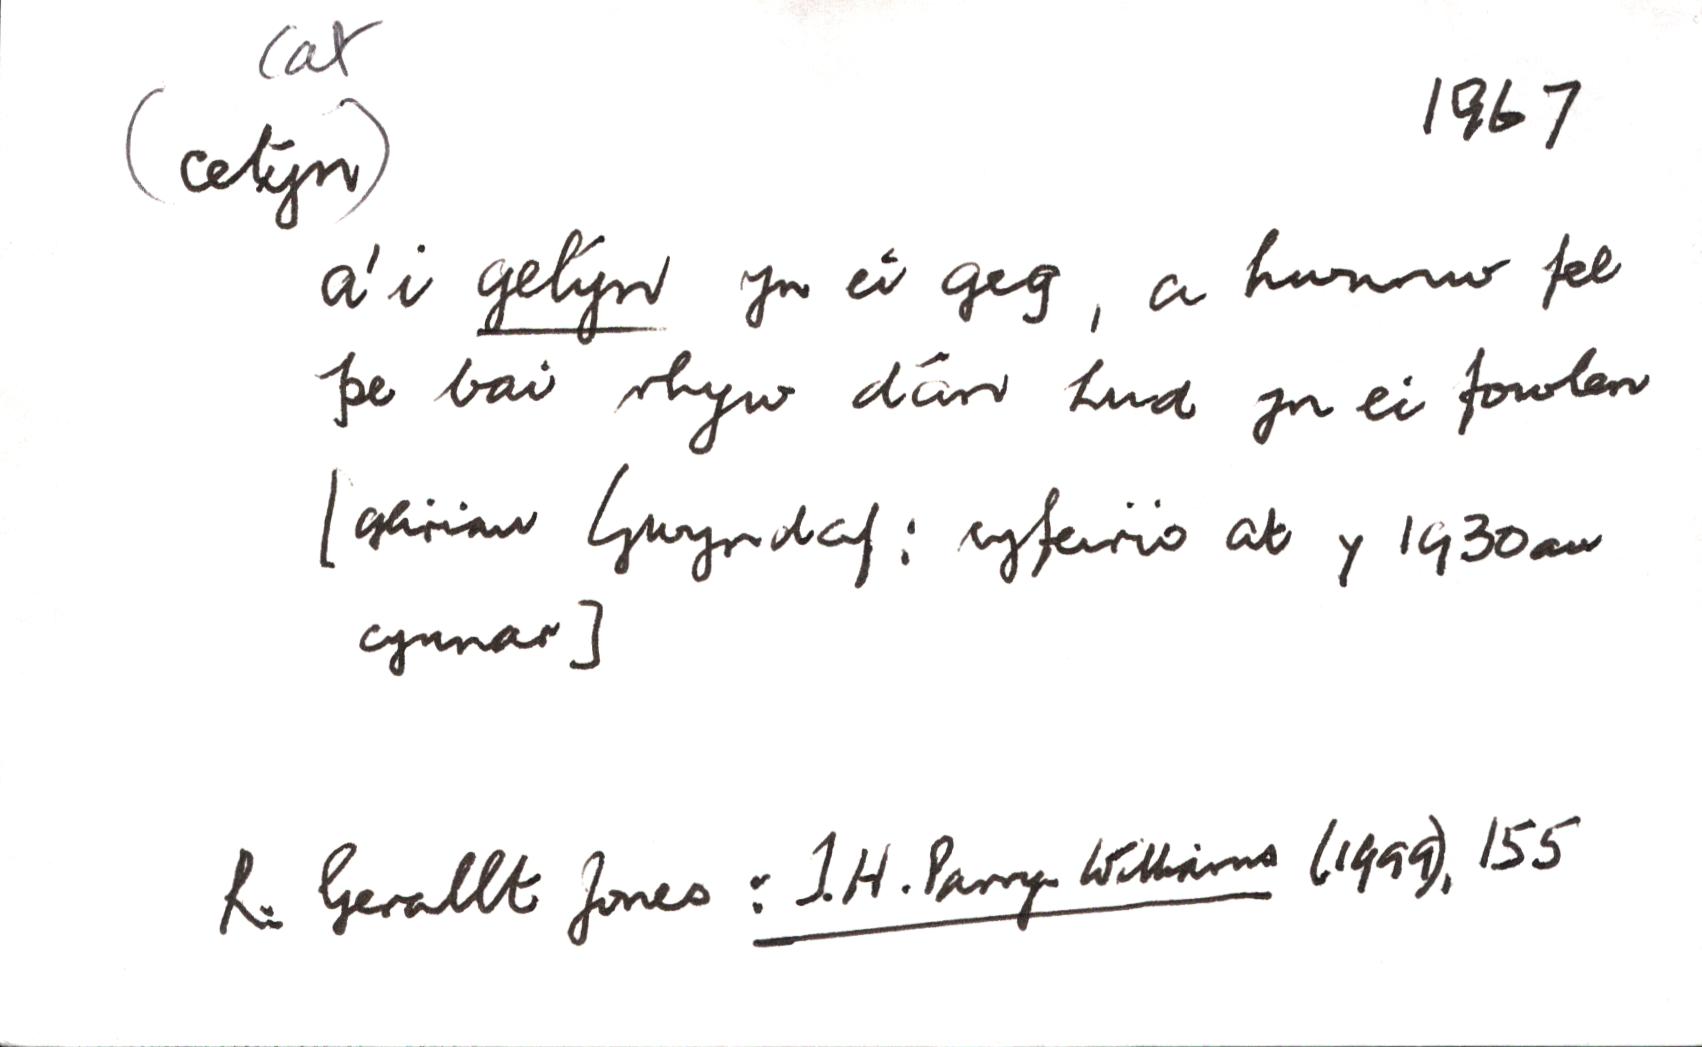 cat
(cetyn)
1967
a'i getyn yn ei geg, a hwnnw fel
pe bai rhyw dân hud yn ei fowlen
[geiriau Gwyndaf: cyfeirio at y 1930au
cynnar]
R. Gerallt Jones : T.H. Parry-Williams (1999), 155